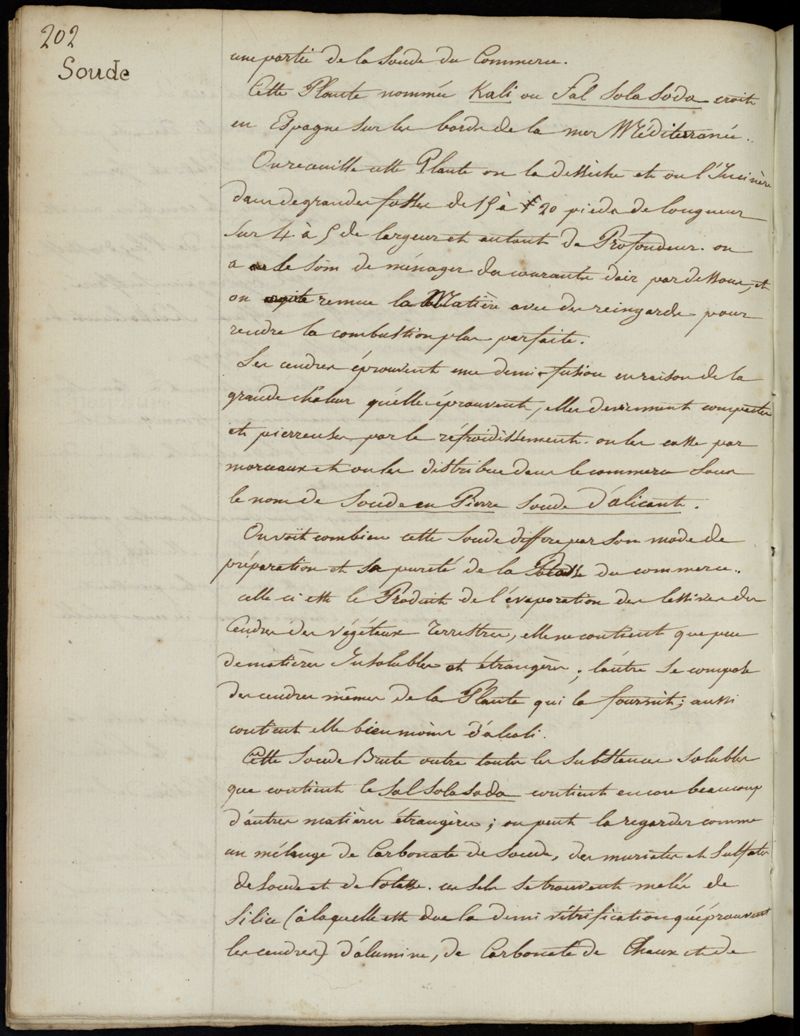 202
Soude
une partie de la Soude du Commerce.
Cette Plante nommée Kali ou Sal Sola Soda croit
en Espagne sur les bords de la mer Méditerranée.
On recueille cette Plante on la dessèche et on l'Incinère
dans de grandes fosses de 15 à 20 pieds de longueur
sur 4 à 5 de largeur et autant de Profondeur. on
a le soin de ménager des courants d'air par dessous, et
on remue la Matière avec des reingards pour
rendre la combustion plus parfaite.
Les cendres éprouvent une demi-fusion en raison de la
grande chaleur qu'elles éprouvent, elles deviennent compactes
et pierreuses par le réfroidissement. on les casse par
morceaux et on les distribue dans le commerce sous
le nom de Soude en Pierre Soude d'alicant.
On voit combien cette Soude differe par son mode de
préparation et sa pureté de la Potasse du commerce.
celle ci est le Produit de l'évaporation des lessives des
Cendres des végéteaux Terrestres, elle ne contient que peu
de matières Insolubles et étrangères; l'autre se compose
des cendres mêmes de la Plante qui la fournit; aussi
contient elle bien moins d'alcali.
Cette Soude Brute outre toutes les Substances solubles
que contient le Sal sola soda contient encore beaucoup
d'autres matières étrangères; on peut la regarder comme
un mélange de Carbonate de Soude, des muriates et Sulfates
de Soude et de Potasse. ces sels se trouvent mêlés de
Silice (à laquelle est due la demi vitrification qu'éprouvent
les cendres) d'alumine, de Carbonate de Chaux et de